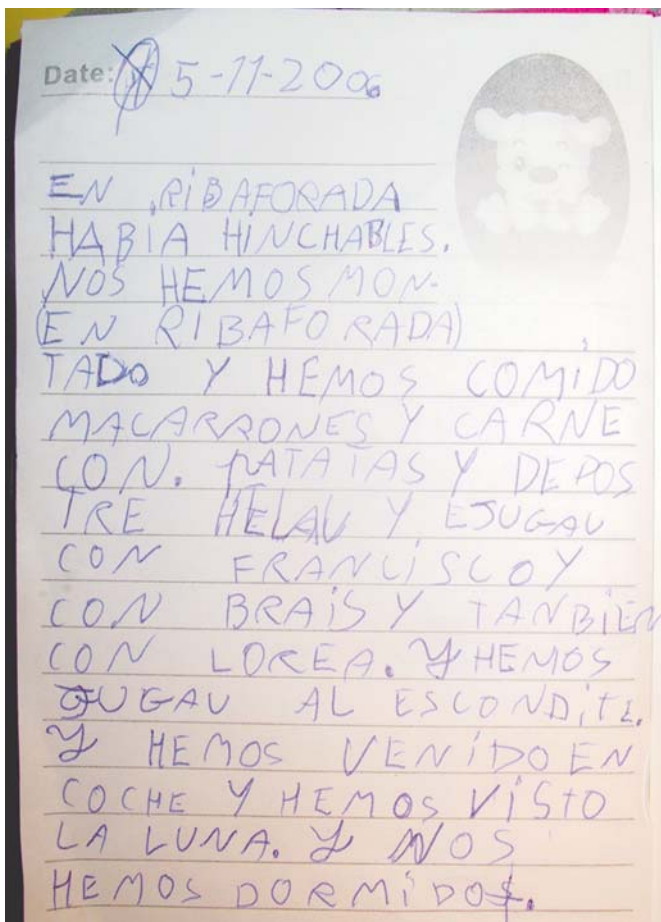 Date: 5-11-2006
EN RIBAFORADA
HABIA HINCHABLES.
NOS HEMOS MON-
(EN RIBAFORADA)
TADO Y HEMOS COMIDO
MACARRONES Y CARNE
CON. PATATAS Y DE POS
TRE HELAU Y EJUGAU
CON FRANCISCO Y
CON BRAIS Y TANBIEN
CON LOREA. Y HEMOS
JUGAU AL ESCONDITE.
Y HEMOS VENIDO EN
COCHE Y HEMOS VISTO
LA LUNA. Y NOS
HEMOS DORMIDO.